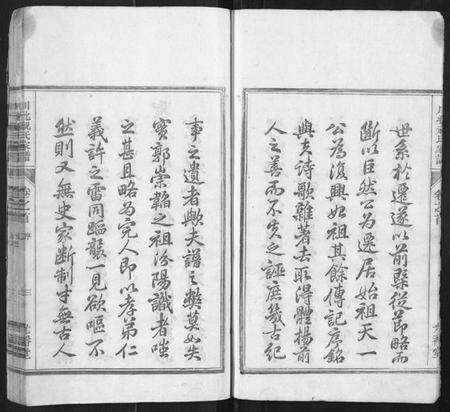 世系於遷遂以前槩從節略而
斷以巨然公為遷居始祖天一
公為復興始祖其餘傳記序銘
與夫詩歌雜著去取得體揚前
人之善而不失之誣庶幾古紀
事之遺者歟夫譜之弊莫如失
實郭崇韜之祖汾陽識者嗤
之甚且略為完人即以孝弟仁
義許之雷同蹈襲一見欲嘔不
然則又無史家斷制寸無古人